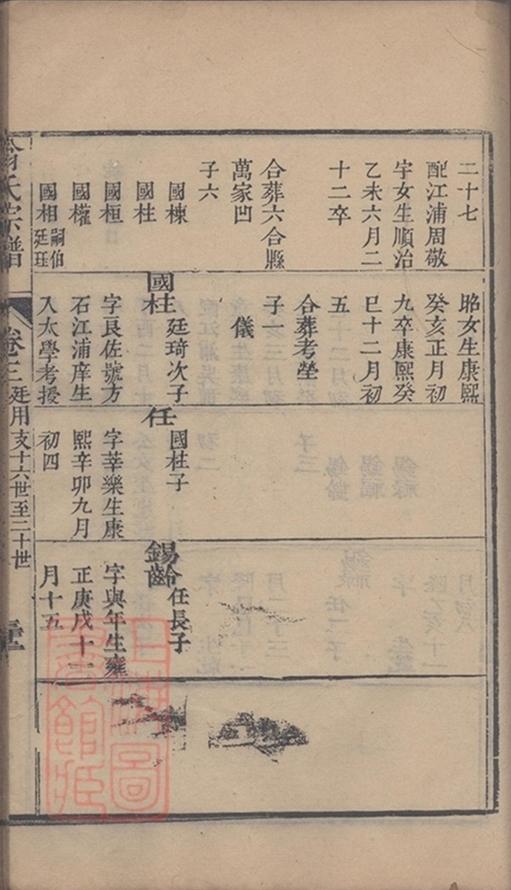 二十七
配江浦周敬
宇女生順治
乙未六月二
十二卒
合葬六合縣
萬家凹
子六
國棟
國柱
國桓
國權
國相 嗣伯廷珏
昭女生康熙
癸亥正月初
九卒康熙癸
巳十二月初
五
合葬考塋
子一
儀
國柱 廷琦次子
字良佐號方
石江浦庠生
入太學考授
任 國柱子
字莘樂生康
熙辛卯九月
初四
錫齡 任長子
字與年生雍
正庚戌十一
月十五
氏宗譜 卷三 廷用支十六世至二十世